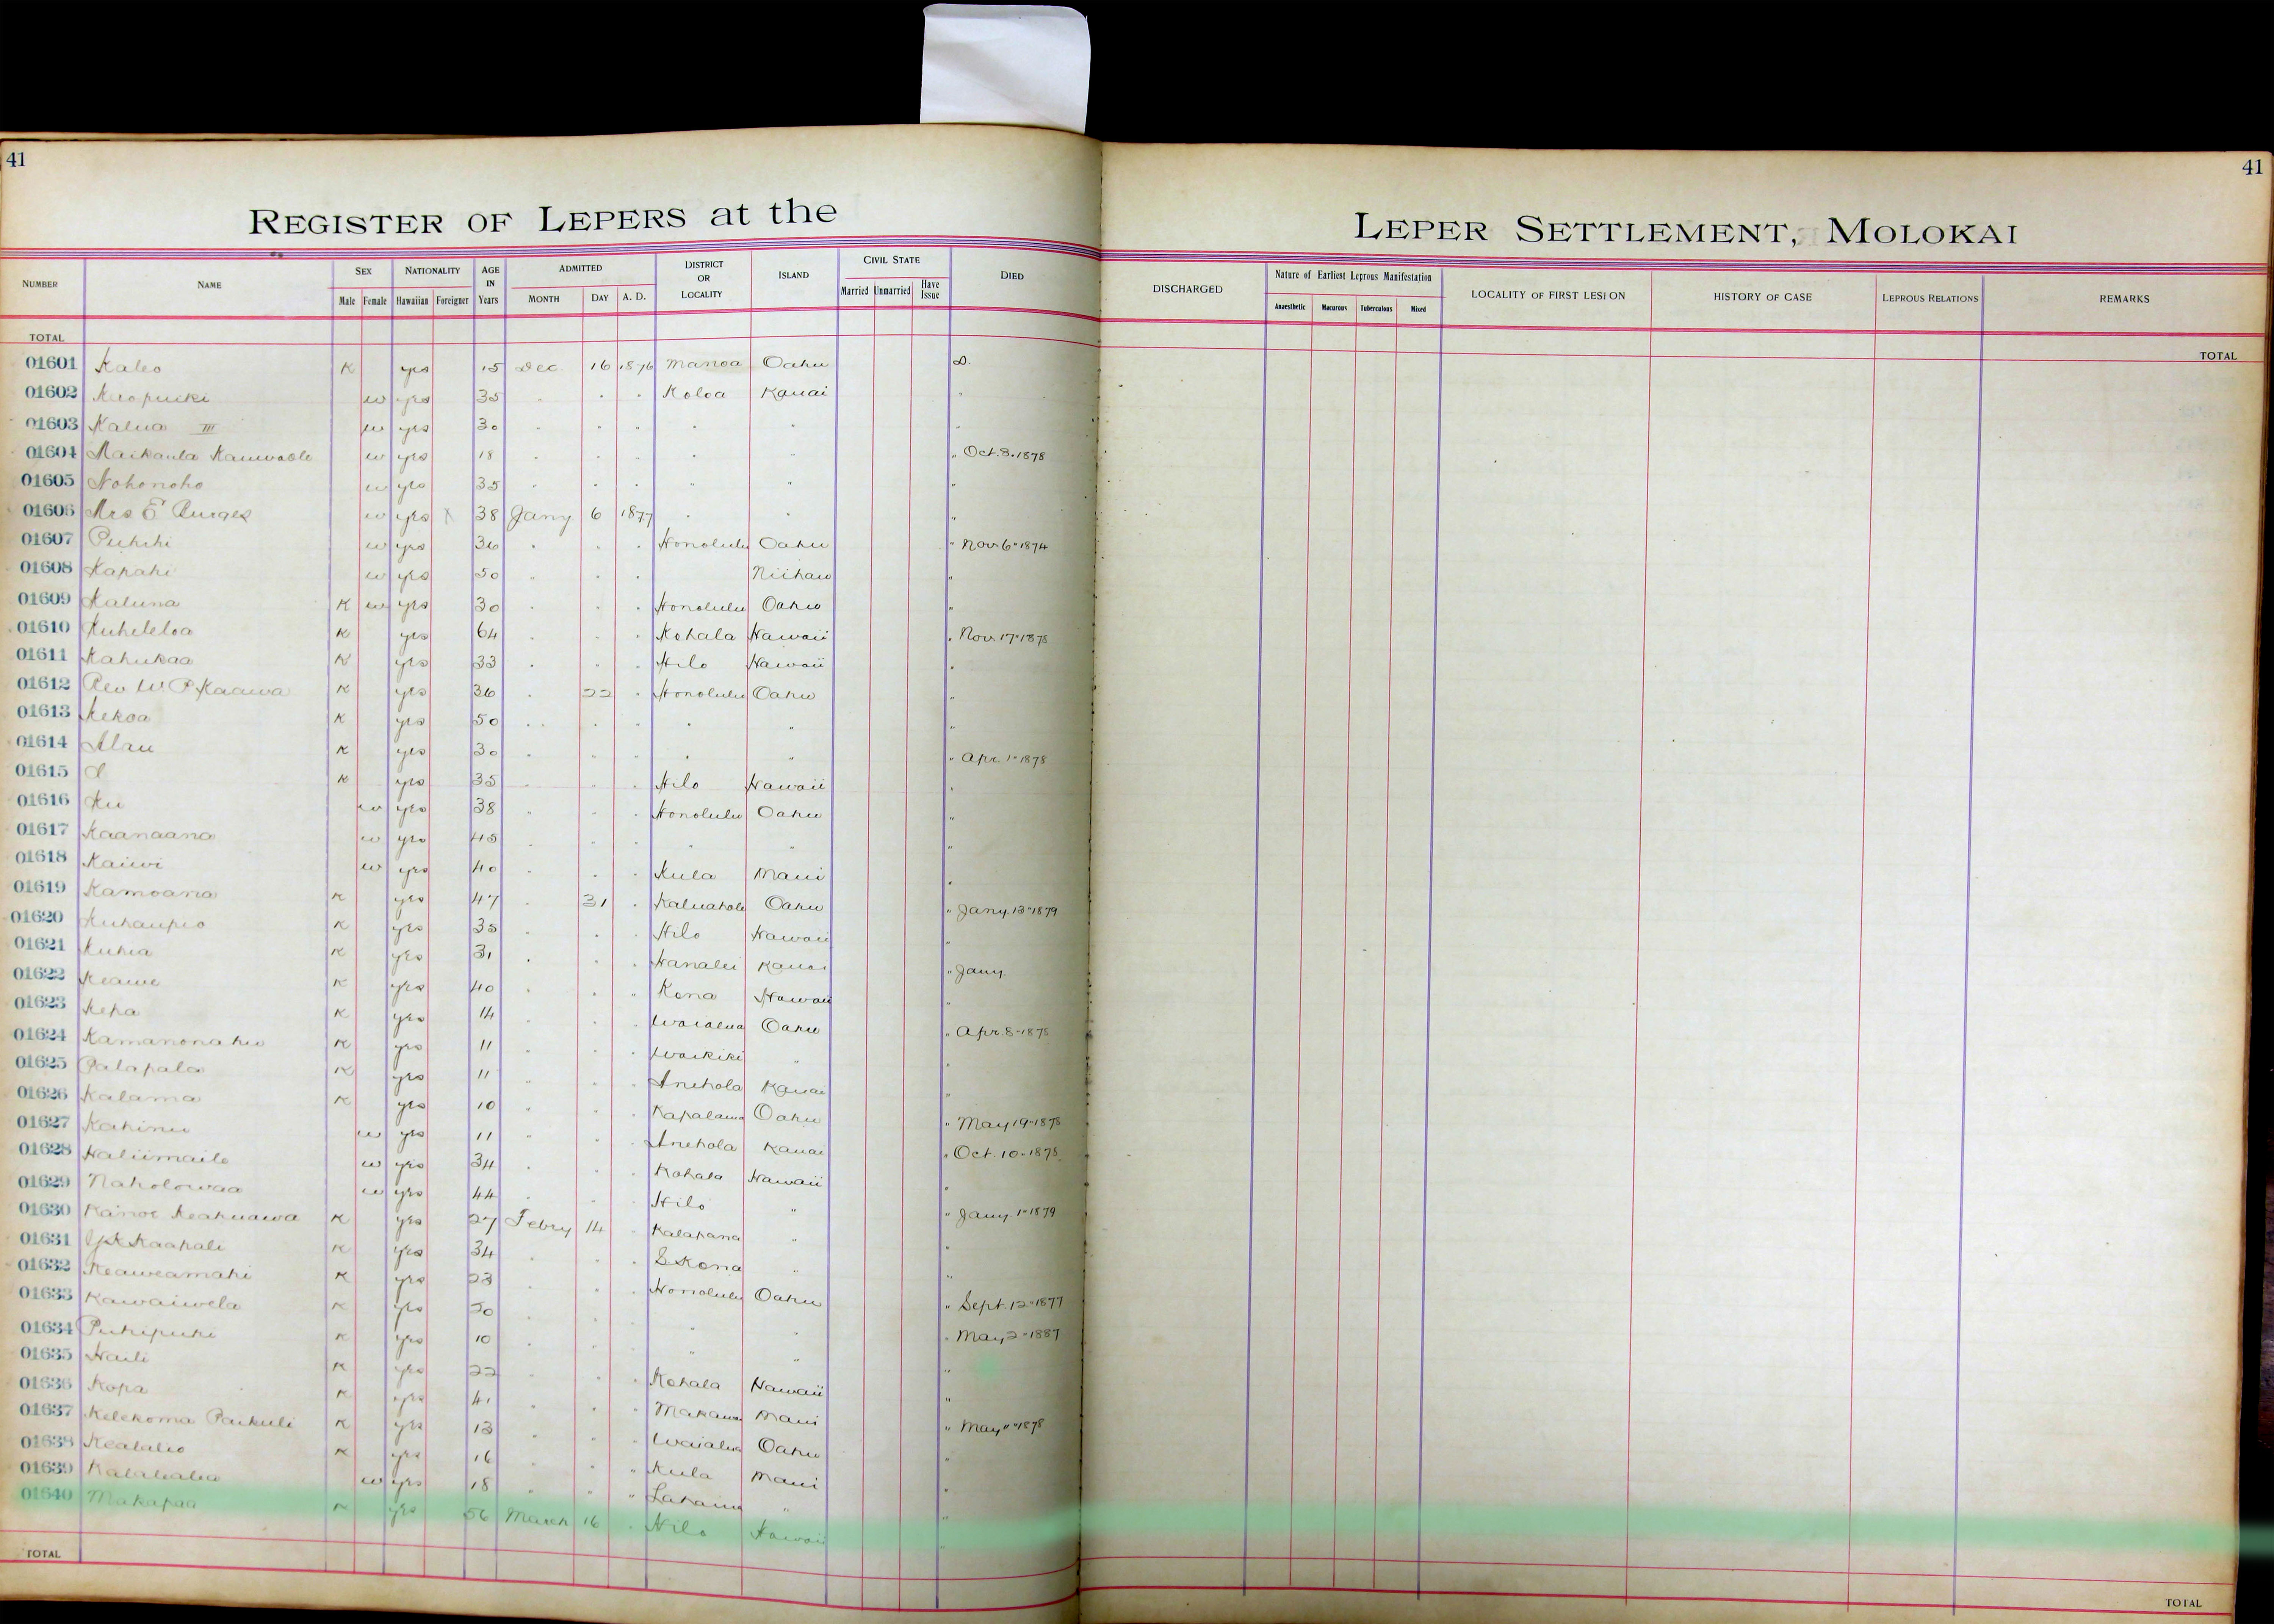 41
41
REGISTER OF LEPERS at the
LEPER SETTLEMENT, MOLOKAI
NUMBER NAME SEX Male Female NATIONALITY Hawaiian Foreigner AGE IN Years ADMITTED MONTH DAY A. D. DISTRICT OR LOCALITY ISLAND CIVIL STATE Married Unmarried Have Issue DIED DISCHARGED Nature of Earliest Leprous Manifestation Anaesthetic Macurous Tuberculous Mixed LOCALITY OF FIRST LESION HISTORY OF CASE LEPROUS RELATIONS REMARKS
TOTAL
TOTAL
01601 Kaleo K yes 15 Dec. 16 1876 Manoa Oahu D.
01602 w yes 35 " " " Koloa Kauai "
01603 Kalua III w yes 30 " " " " " "
01604 Maikaula w yes 18 " " " " " " Oct. 3. 1878
01605 Nohonoho w yes 35 " " " " " "
01606 Mrs E Burges w yes X 38 Jany 6 1877 " " "
01607 Puhihi w yes 36 " " " Honolulu Oahu " Nov. 6" 1874
01608 Kapahi w yes 50 " " " Niihau "
01609 Kaluna K w yes 30 " " " Honolulu Oahu "
01610 Kuheleloa K yes 64 " " " Kohala Hawaii " Nov. 17" 1878
01611 Kahukaa K yes 33 " " " Hilo Hawaii "
01612 Rev W. P. Kaawa K yes 36 " 22 " Honolulu Oahu "
01613 Kekoa K yes 50 " " " " " "
01614 Alau K yes 30 " " " " " " Apr. 1" 1878
01615 K yes 35 " " " Hilo Hawaii "
01616 Ku w yes 38 " " " Honolulu Oahu "
01617 Kaanaana w yes 45 " " " " " "
01618 Kaiwi w yes 40 " " " Kula Maui "
01619 Kamoana K yes 47 " 31 " Kaluahole Oahu " Jany. 13" 1879
01620 Kuhaupio K yes 35 " " " Hilo Hawaii "
01621 Kuhia K yes 31 " " " Hanalei Kauai " Jany.
01622 Keawe K yes 40 " " " Kona Hawaii "
01623 Kepa K yes 14 " " " Waialua Oahu " Apr. 8" 1878
01624 Kamanonahu K yes 11 " " " Waikiki " "
01625 Palapala K yes 11 " " " Anehola Kauai "
01626 Kalama K yes 10 " " " Kapalama Oahu " May 19" 1878
01627 Kahinu w yes 11 " " " Anehola Kauai " Oct. 10" 1878
01628 Haliimaile w yes 34 " " " Kohala Hawaii "
01629 Naholowaa w yes 44 " " " Hilo " " Jany. 1" 1879
01630 Kanoe Keakuawa K yes 27 Febry 14 " Kalapana " "
01631 Kaahale K yes 34 " " " S Kona " "
01632 Keaweamahi K yes 23 " " " Honolulu Oahu " Sept. 12" 1877
01633 Kawaiwela K yes 20 " " " " " " May 2" 1887
01634 Puhipuhi K yes 10 " " " " " "
01635 Haili K yes 22 " " " Kohala Hawaii "
01636 Kopa K yes 41 " " " Makawao Maui " May 11" 1878
01637 Kelekoma Paikuli K yes 13 " " " Waialua Oahu "
01638 Kealalio K yes 16 " " " Kula Maui "
01639 w yes 18 " " " Lahaina " "
01640 Makapaa K yes 56 March 16 " Hilo Hawaii "
TOTAL
TOTAL